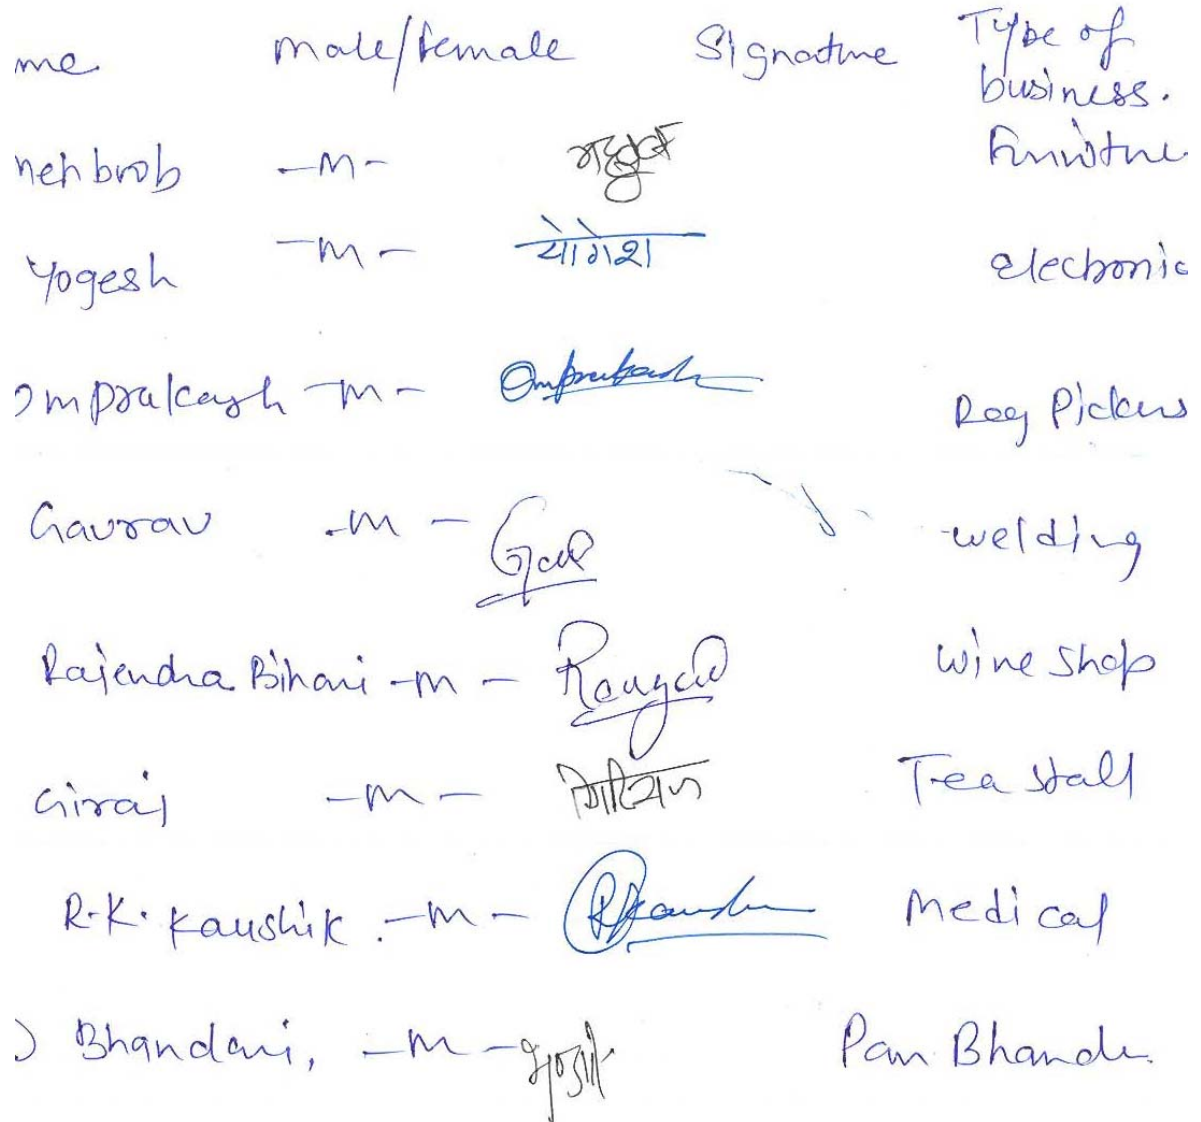 me male/female Signature Type of
business.
Mehboob -M- महबूब Furniture
Yogesh -M- योगेश electronic
Omprakash -M- Omprakash Rag Pickers
Gaurav -M- Gaur
Rajendra Bihari -M- wine shop
welding
Giraj -M- Tea stall
R.K. Kaushik. -M- RKaushik Medical
Bhandari, -M- Pan Bhandar